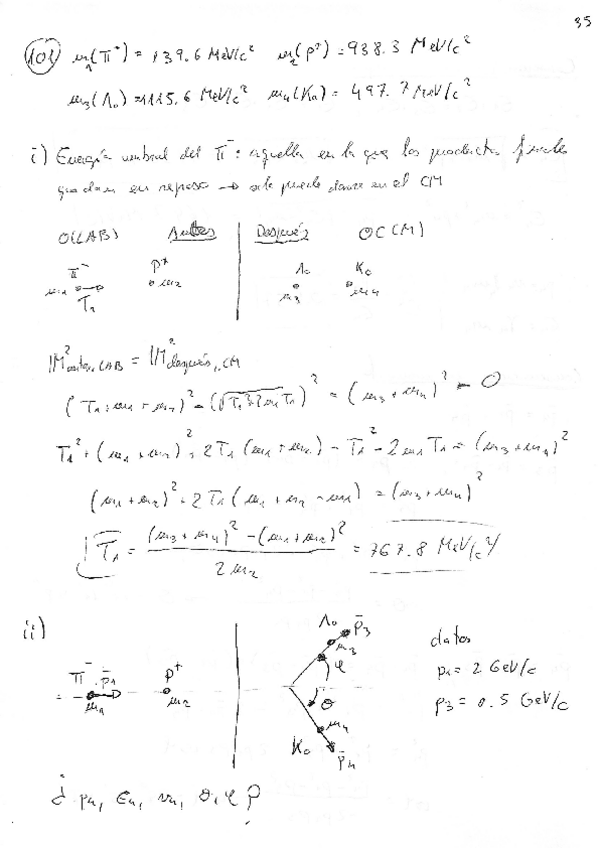 35
101 m₁(π⁻) = 139.6 MeV/c² m₂(p⁺) = 938.3 MeV/c²
m₃(Λ₀) = 1115.6 MeV/c² m₄(K₀) = 497.7 MeV/c²
i) Energía umbral del π⁻: aquella en la que los productos finales
quedan en reposo → solo puede darse en el CM
O(LAB) Antes Después O(CM)
π⁻ p⁺ Λ₀ K₀
m₁ m₂ m₃ m₄
T₁
|M²antes, LAB = |M²después, CM
(T₁ + m₁ + m₂)² - (√T₁²+2m₁T₁)² = (m₃ + m₄)² - 0
T₁² + (m₁ + m₂)² + 2T₁(m₁ + m₂) - T₁² - 2m₁T₁ = (m₃ + m₄)²
(m₁ + m₂)² + 2T₁(m₁ + m₂ - m₁) = (m₃ + m₄)²
T₁ = ((m₃ + m₄)² - (m₁ + m₂)²) / 2m₂ = 767.8 MeV/c²
ii)
Λ₀ p̄₃
m₃
π⁻ p̄₁ p⁺ φ
m₁ m₂ θ
m₄
K₀ p̄₄
datos
p₁ = 2 GeV/c
p₃ = 0.5 GeV/c
¿ p₄, E₄, v₄, θ, φ ?